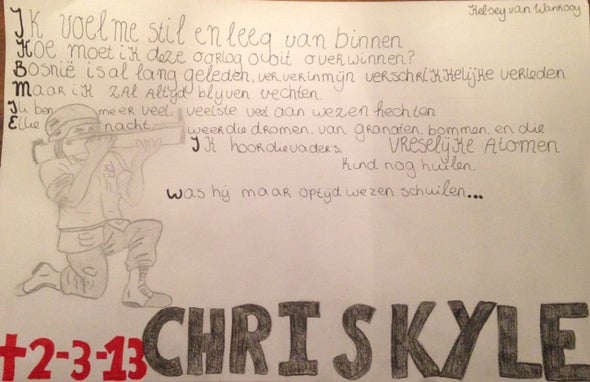 Kelsey van Wanrooy
Ik voel me stil en leeg van binnen
Hoe moet ik deze oorlog ooit overwinnen?
Bosnië is al lang geleden, ver ver in mijn verschrikkelijke verleden
Maar ik zal altijd blyven vechten.
Ik ben meer veel, veelste veel aan wezen hechten
Elke nacht weer die dromen van granaten, bommen, en die
vreselyke atomen
Ik hoor die vaders.
kind nog huilen.
Was hij maar optijd wezen schuilen...
✝2-3-13 CHRIS KYLE